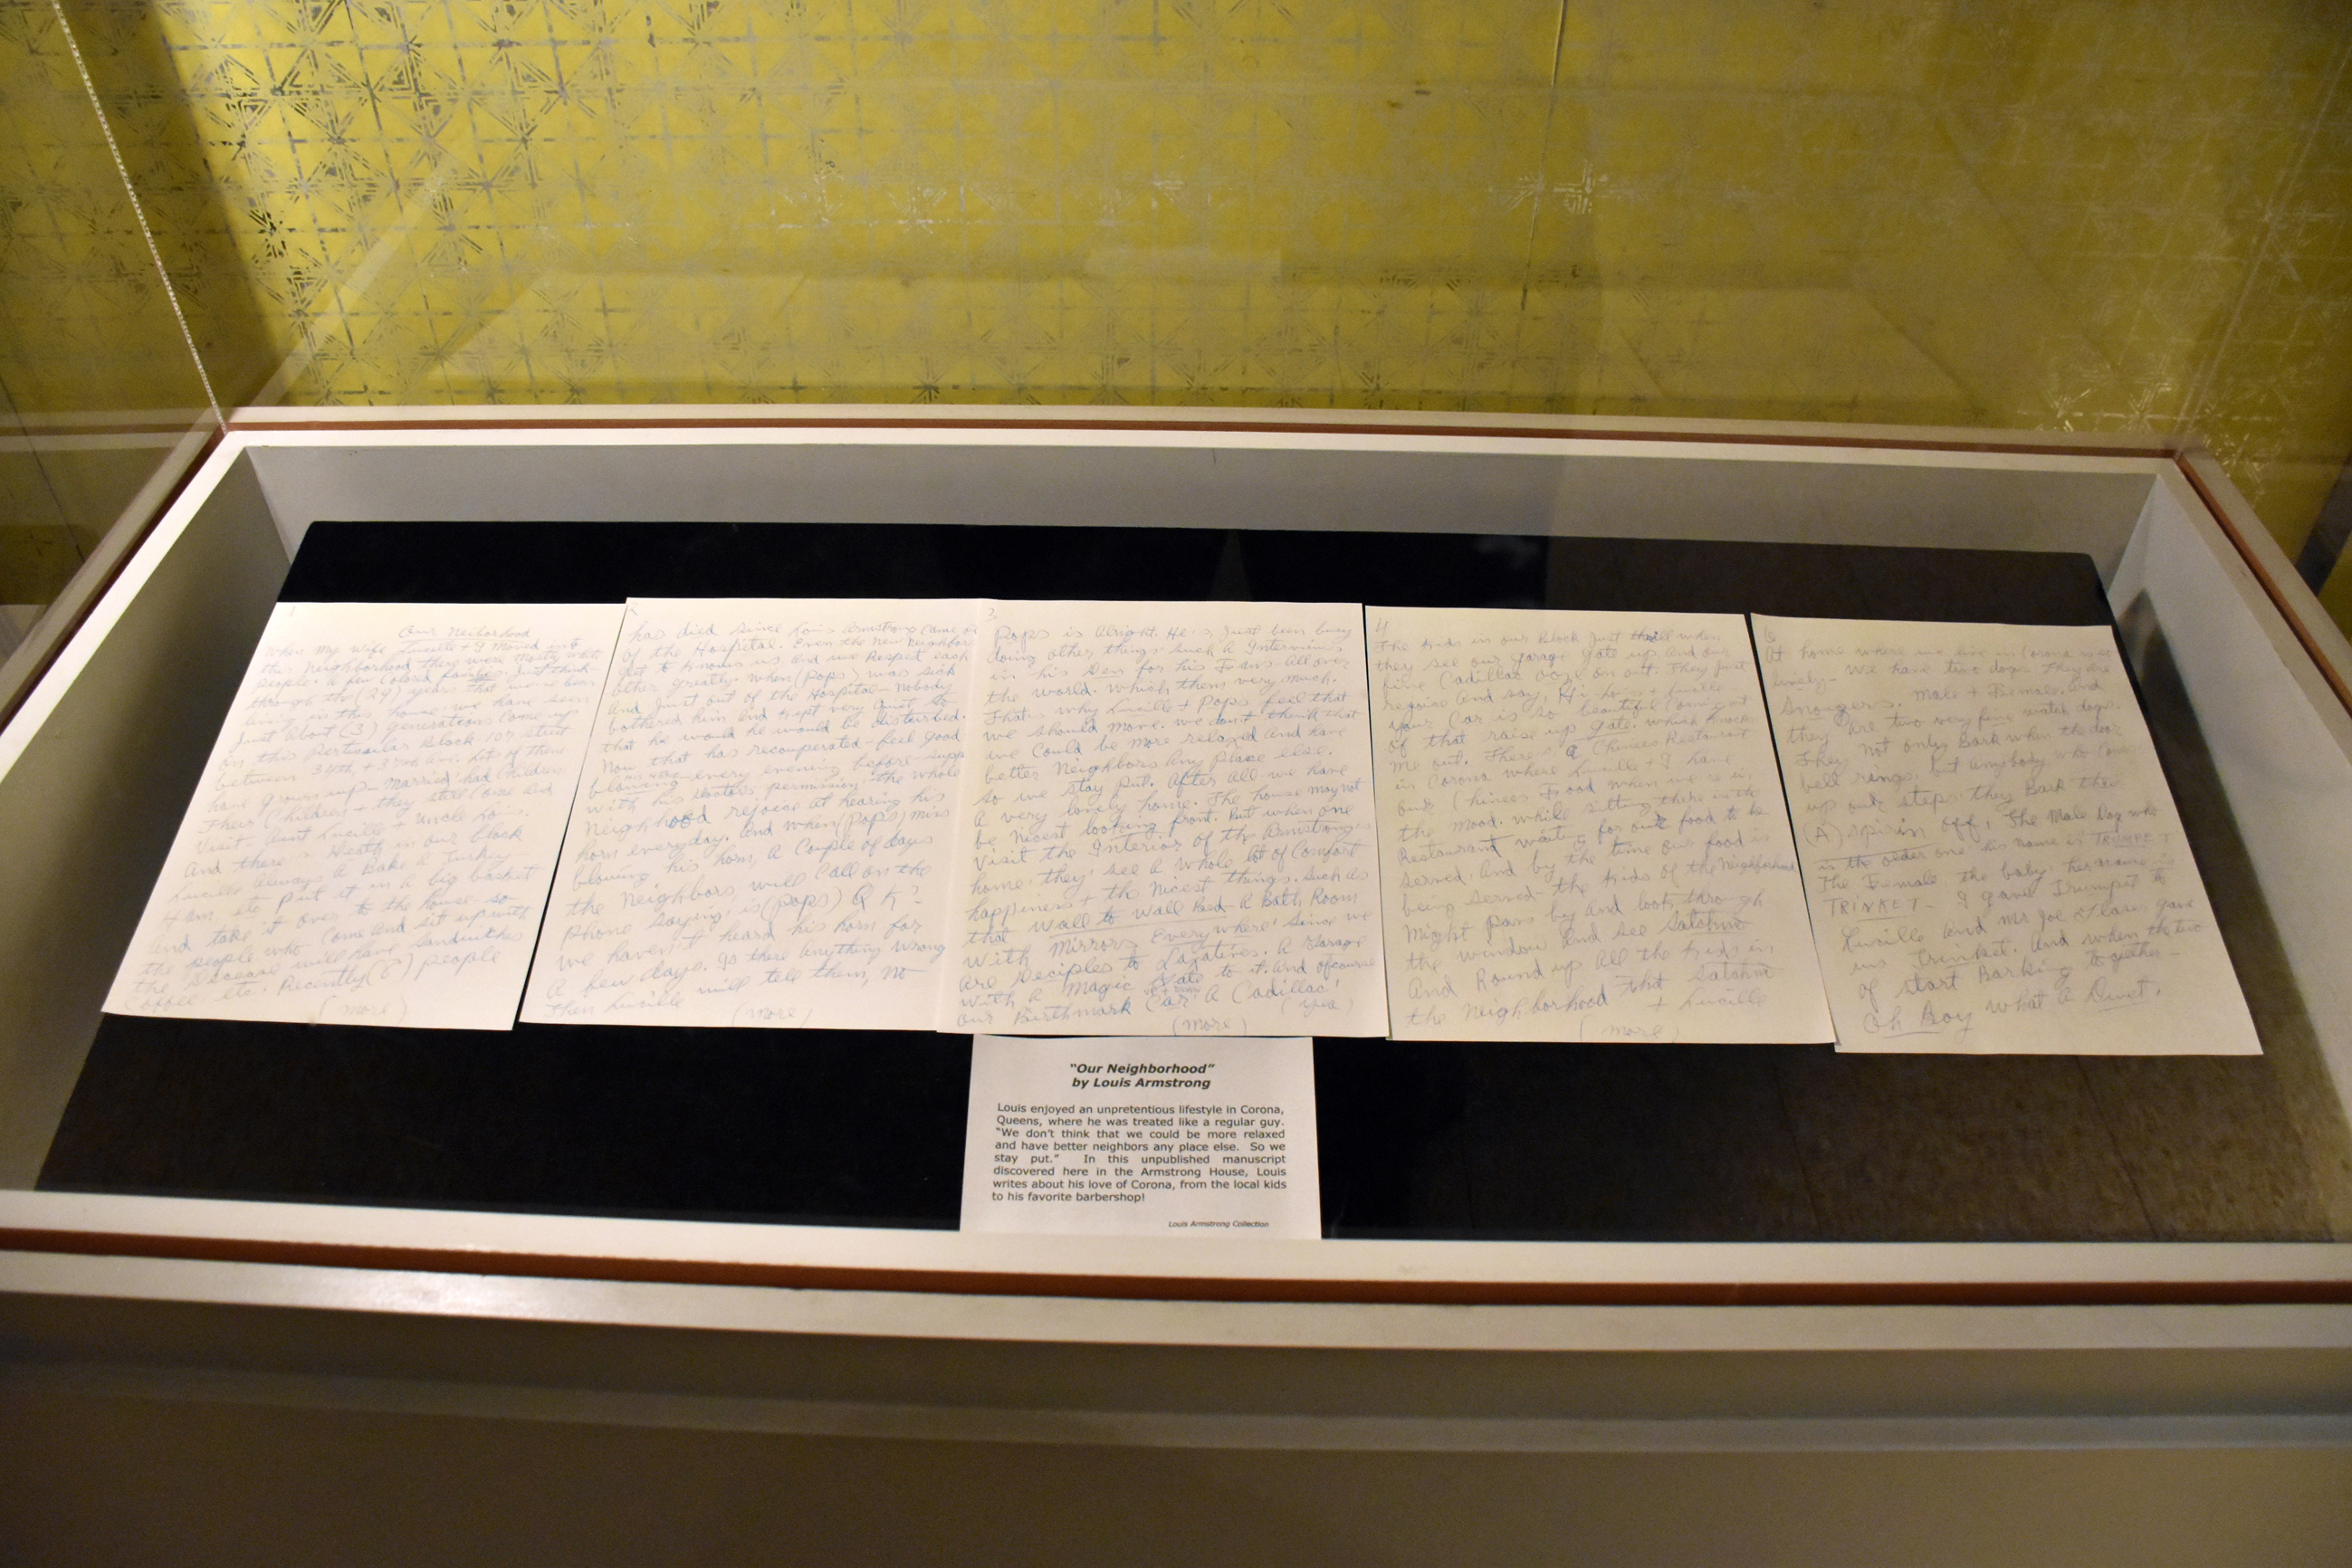 1
Our Neiborhood
When my wife Lucille + I Moved into
this Neighborhood there were Mostly white
people. A few Colored families. Just think-
through the (29) years that we've been
living in this house, we have seen
Just about (3) generations Come up
on this perticular Block-107 street
between 34th, + 37th Ave. Lots of them
have grown up- Married had Children
Their Children + they still Come and
Visit Aunt Lucille + Uncle Louis.
And there's Death in our block
Lucille Always Bake a Turkey
Ham, etc put it in a big basket
and take it over to the house- so
the people who Come and sit up with
the Decease will have Sandwiches
Coffee etc. Recently (6) people
(more)
has died since Louis Armstrong Came
of the Hospital. Even the New Neighbor
got to Knowns us And we Respect each
other greatly. When (pops) was sick
And Just out of the Hospital- Nobody
bothered him And Kept very Quiet so
that he would be disturbed.
Now that has recouperated- feel good
blowing every evening before
with his Doctors permission- the whole
Neighborhood rejoice at hearing his
horn everyday. And when (pops) miss
blowing his horn, A Couple of days
the Neighbors will Call on the
phone saying, is (pops) O K?
We haven't heard his horn for
A few days. Is there anything wrong
Then Lucille will tell them, No
(more)
3
Pops is Alright. He's Just been busy
doing other things such A Interviews
in his Den for his Fans All over
the world. Which them very much.
That's why Lucille + Pops feel that
we should Move. We don't think that
we Could be More relaxed And have
better Neighbors Any place else.
So we stay put. After All we have
A very lovely home. The house may not
be Nicest looking front. But when one
Visit the Interior of the Armstrong's
home they' see A whole lot of Comfort
happiness + the Nicest things. Such As
that Wall to Wall Bed- A Bath Room
with Mirrors Everywhere' Since we
Are Deciples to Laxatives. A Garage
with A Magic Gate to it. And ofcourse
our Birthmark Car' A Cadillac'
(Yea)
(more)
4
The Kids in our Block Just thrill when
they see our garage gate up, And our
fine Cadillac ooze on out. They Just
rejoice And say, Hi Louis + Lucille
your Car is so beautiful Coming out
of that raise up gate. Which Knocks
Me out. There's A Chinees Restaurant
in Corona where Lucille + I have
our Chinees Food when we're in
the Mood. While sitting there in the
Restaurant waiting for our food to be
served. And by the time our food is
being served- the Kids of the Neighborhood
Might pass by and look through
the window and see Satchmo
And Round up All the Kids in
the Neighborhood that Satchmo
+ Lucille
(more)
6
At home where we live in Corona
lively- We have two dogs. They Are
Snouzers. Male + Female. And
they Are two very fine watch dogs.
They Not only Bark when the door
bell rings, but Anybody who Comes
up our steps, they Bark their
(A) spirin off, The Male Dog who
is the older one his name is TRUMPET
The Female the baby her name is
TRINKET- I gave Trumpet to
Lucille And Mr Joe gave
us Trinket. And when the two
of start Barking together-
Oh Boy what A Duet.
"Our Neighborhood"
by Louis Armstrong
Louis enjoyed an unpretentious lifestyle in Corona,
Queens, where he was treated like a regular guy.
"We don't think that we could be more relaxed
and have better neighbors any place else. So we
stay put." In this unpublished manuscript
discovered here in the Armstrong House, Louis
writes about his love of Corona, from the local kids
to his favorite barbershop!
Louis Armstrong Collection